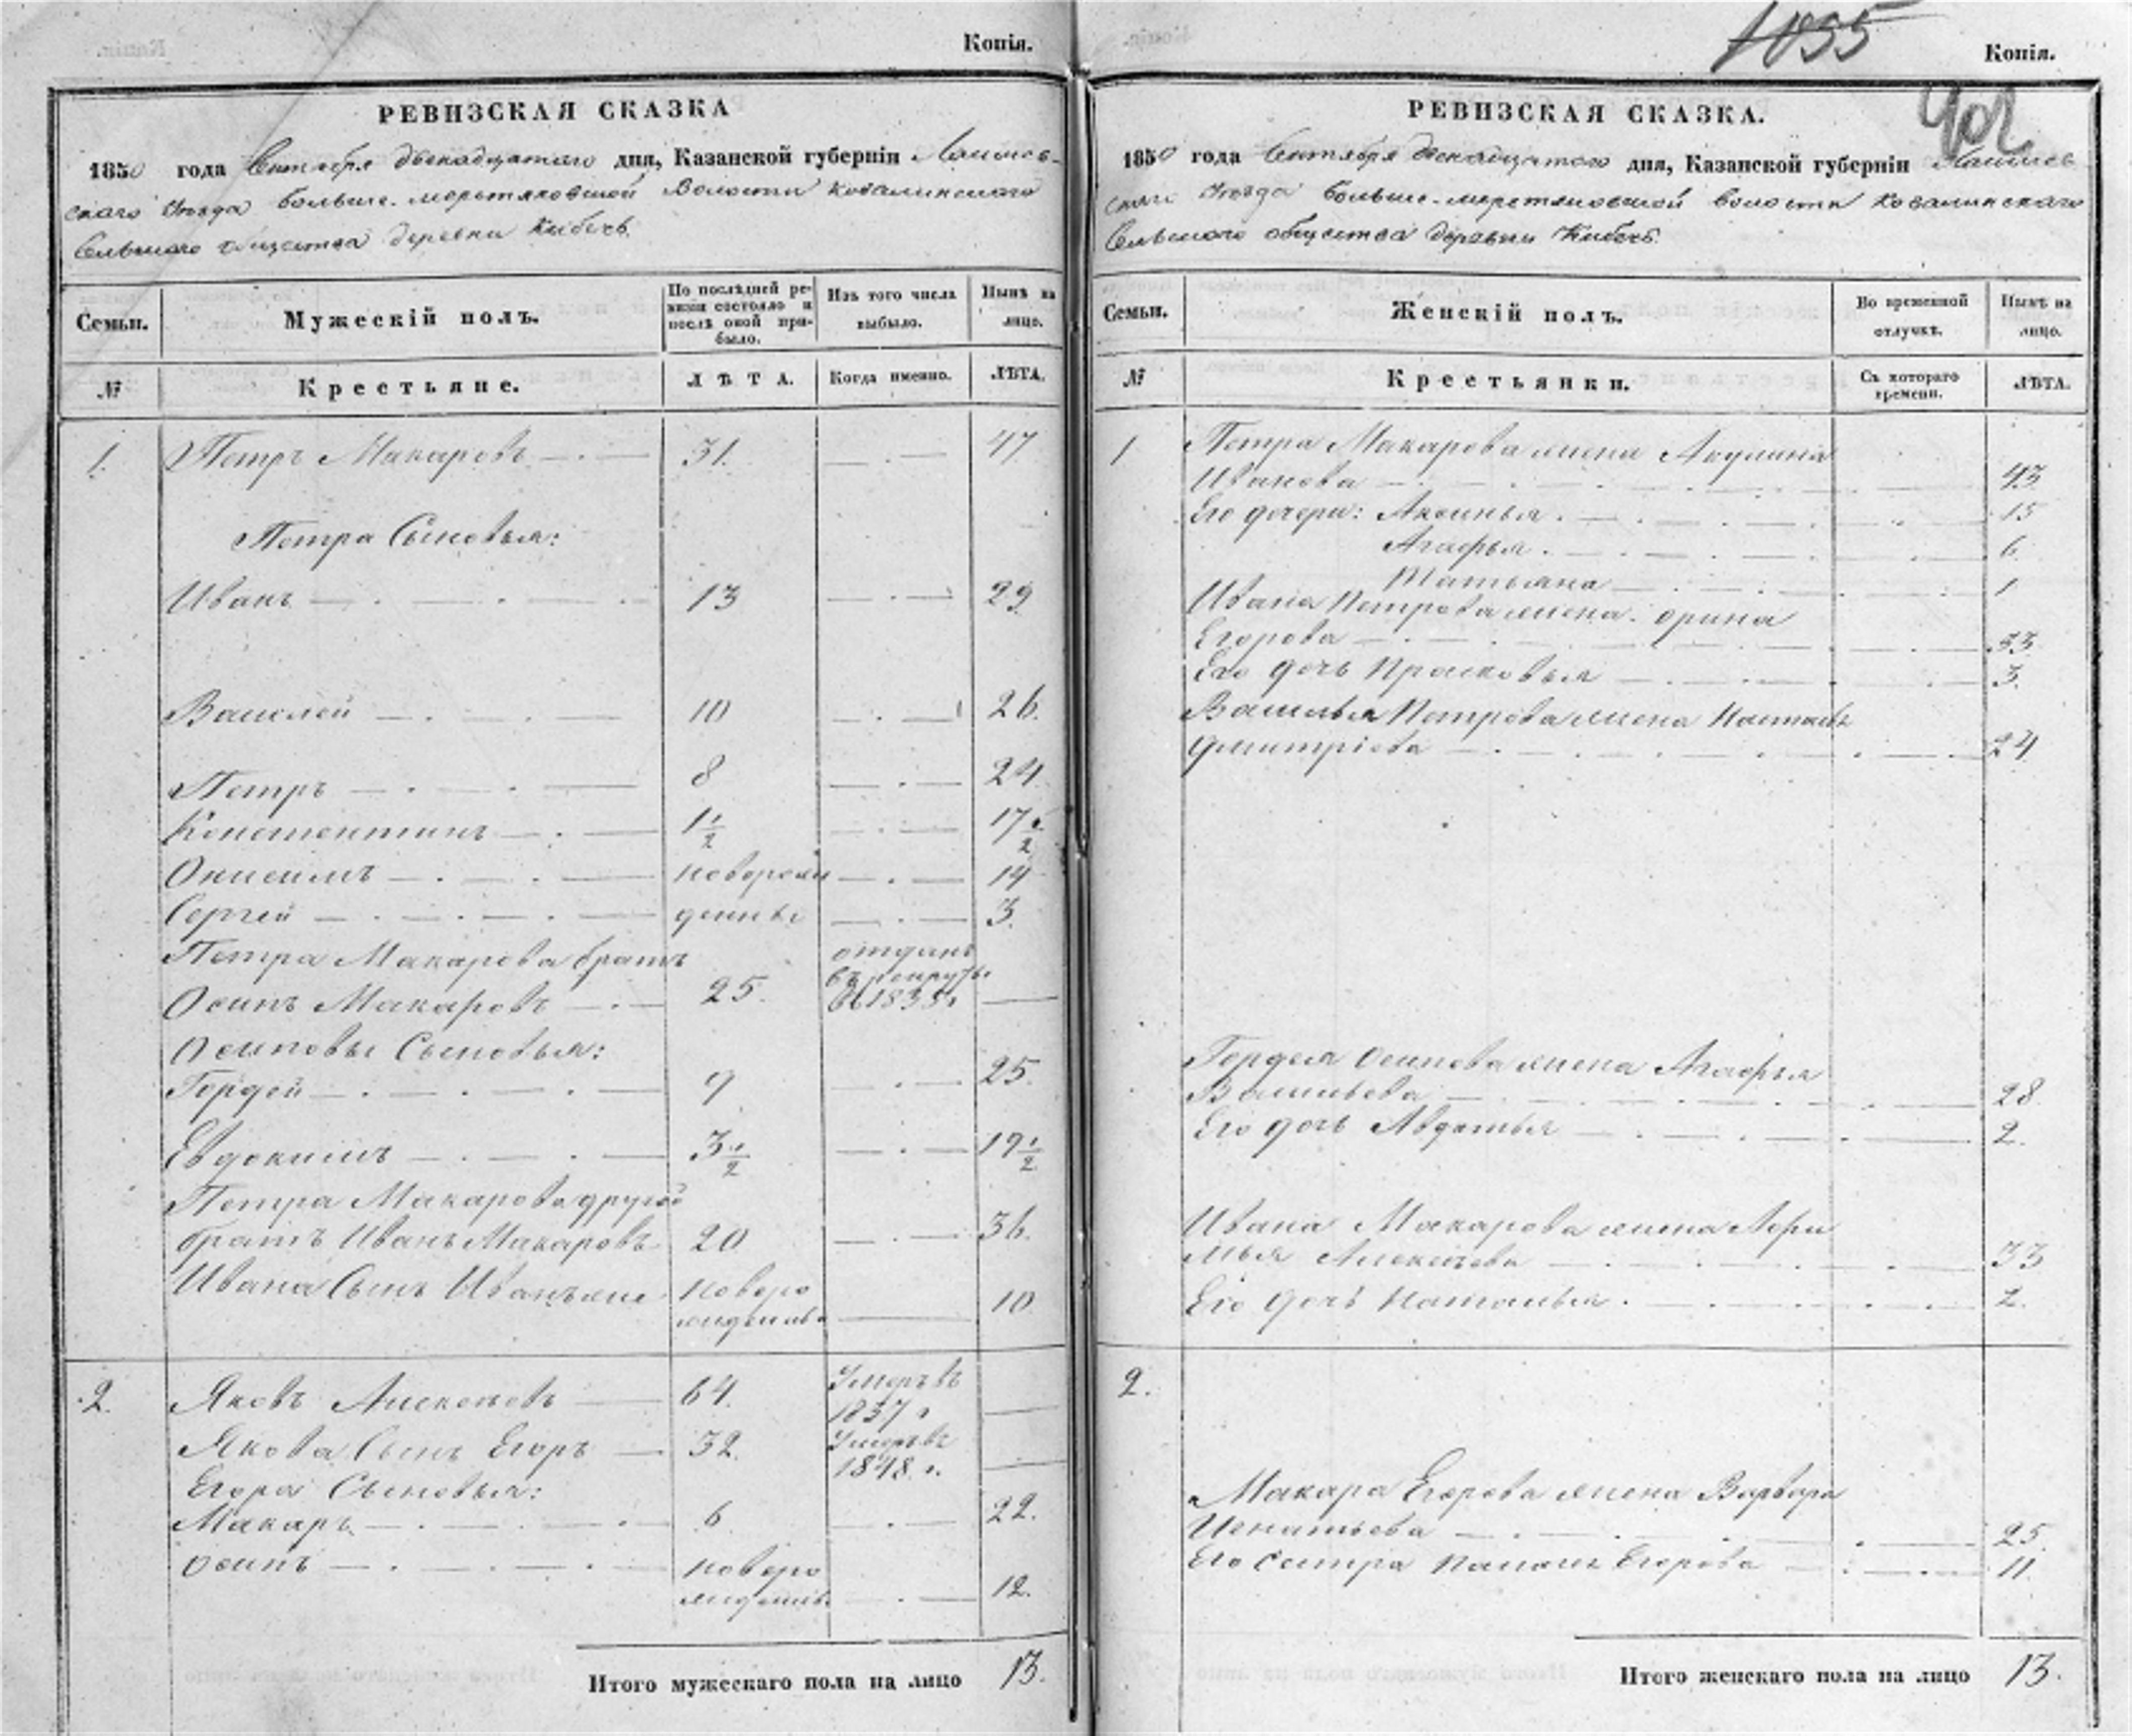 Копія.
РЕВИЗСКАЯ СКАЗКА
1850 года Сентября двенадцатого дня, Казанской губерніи Лаишев-
скаго Уезда больше-меретяковской Волости Ковалинскаго
Сельскаго общества деревни Кибечь
Семьи.
Мужескій полъ.
По послѣдней ре-
визіи состояло и
послѣ оной при-
было.
Изъ того числа
выбыло.
Нынѣ на
лицо.
№
Крестьяне.
ЛѢТА.
Когда именно.
ЛѢТА.
1. Петръ Макаровъ 31. 47
Петра Сыновья:
Иванъ 13 29
Василей 10 26.
Петръ 8 24
Констентинъ 1 1/2 17 1/2
Онисимъ новорож 14
Сергей денны 3
Петра Макарова братъ отданъ
Осипъ Макаровъ 25. въ рекруты
въ 1835 г
Осиповы Сыновья:
Гордей 9 25.
Евдокимъ 3 1/2 19 1/2
Петра Макарова другой
братъ Иванъ Макаровъ 20 36.
Ивана Сынъ Иванъ же новоро 10
жденны
2. Яковъ Алексеевъ 64. Умеръ въ
1837 г
Якова Сынъ Егоръ 32. Умеръ въ
1848 г.
Егора Сыновья:
Макаръ 6 22.
Осипъ новоро
жденны 12.
Итого мужескаго пола на лицо 13.
1055
Копія.
902
РЕВИЗСКАЯ СКАЗКА.
1850 года Сентября двенадцатого дня, Казанской губерніи Лаишев
скаго Уезда больше-меретяковской волости Ковалинскаго
Сельскаго общества деревни Кибечь.
Семьи.
Женскій полъ.
Во временной
отлучкѣ.
Нынѣ на
лицо.
№
Крестьянки.
Съ котораго
времени.
ЛѢТА.
1 Петра Макарова жена Акулина
Иванова 43
Его дочери: Аксинья 15
Агафья 6
Татьяна 1
Ивана Петрова жена Орина
Егорова 33
Его дочь Прасковья 3.
Василья Петрова жена
Дмитріева 24
Гордея Осипова жена Агафья
Васильева 28
Его дочь Авдотья 2.
Ивана Макарова жена
Алексеева 33
Его дочь Наталья 2.
2.
Макара Егорова жена Варвара
Игнатьева 25
Его Сестра Егорова 11
Итого женскаго пола на лицо 13.